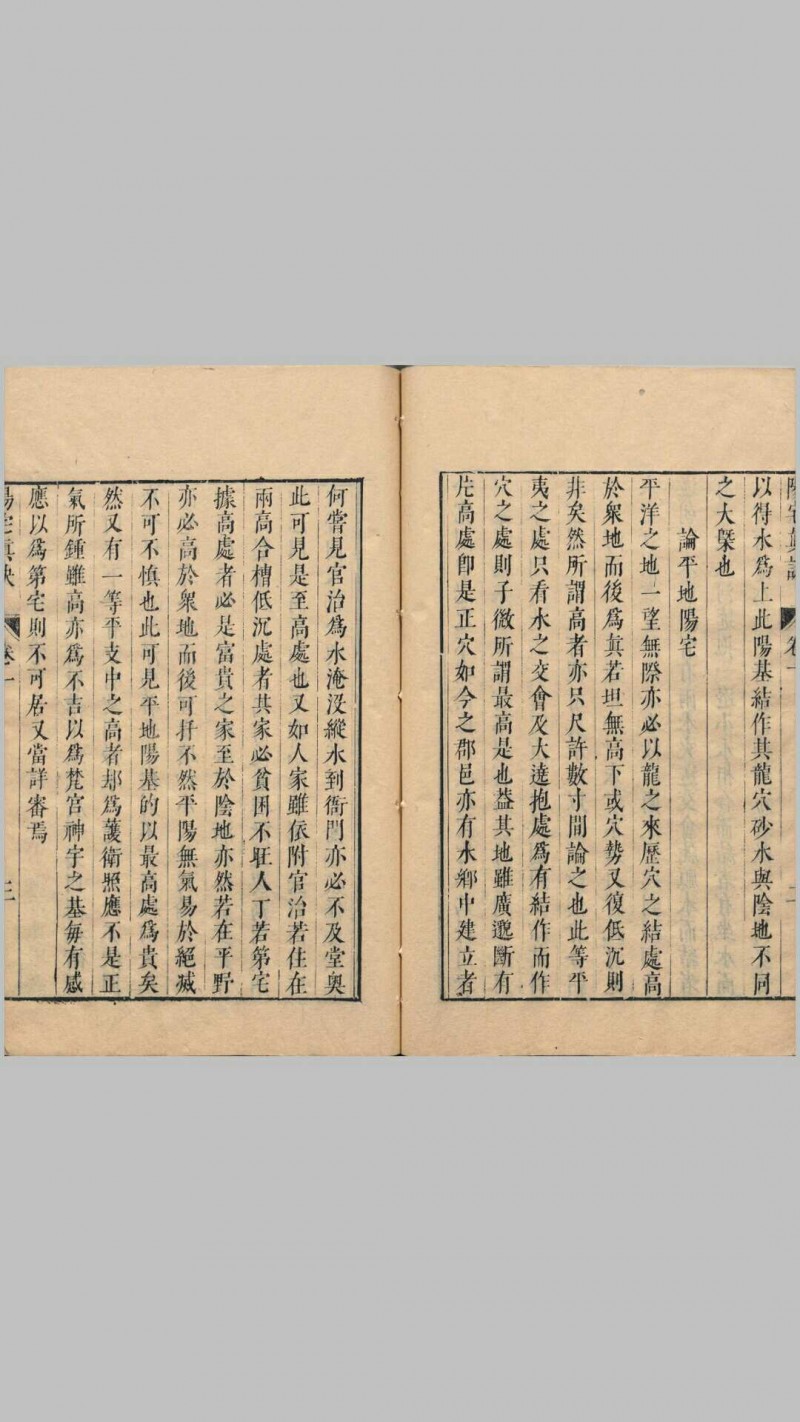 陽宅眞訣 卷一 二
以得水爲上此陽基結作其龍穴砂水與陰地不同
之大槩也
論平地陽宅
平洋之地一望無際亦必以龍之來歷穴之結處高
於衆地而後爲眞若坦無高下或穴勢又復低沉則
非矣然所謂高者亦只尺許數寸間論之也此等平
夷之處只看水之交會及大遶抱處爲有結作而作
穴之處則子微所謂最高是也葢其地雖廣邈斷有
片高處卽是正穴如今之郡邑亦有水鄉中建立者
何嘗見官治爲水淹没縱水到衙門亦必不及堂奥
此可見是至高處也又如人家雖依附官治若住在
兩高合槽低沉處者其家必貧困不旺人丁若第宅
據高處者必是富貴之家至於陰地亦然若在平野
亦必高於衆地而後可扦不然平陽無氣易於絕滅
不可不慎也此可見平地陽基的以最高處爲貴矣
然又有一等平支中之高者却爲護衛照應不是正
氣所鍾雖高亦爲不吉以爲梵宫神宇之基每有感
應以爲第宅則不可居又當詳審焉
陽宅眞訣 卷一 三